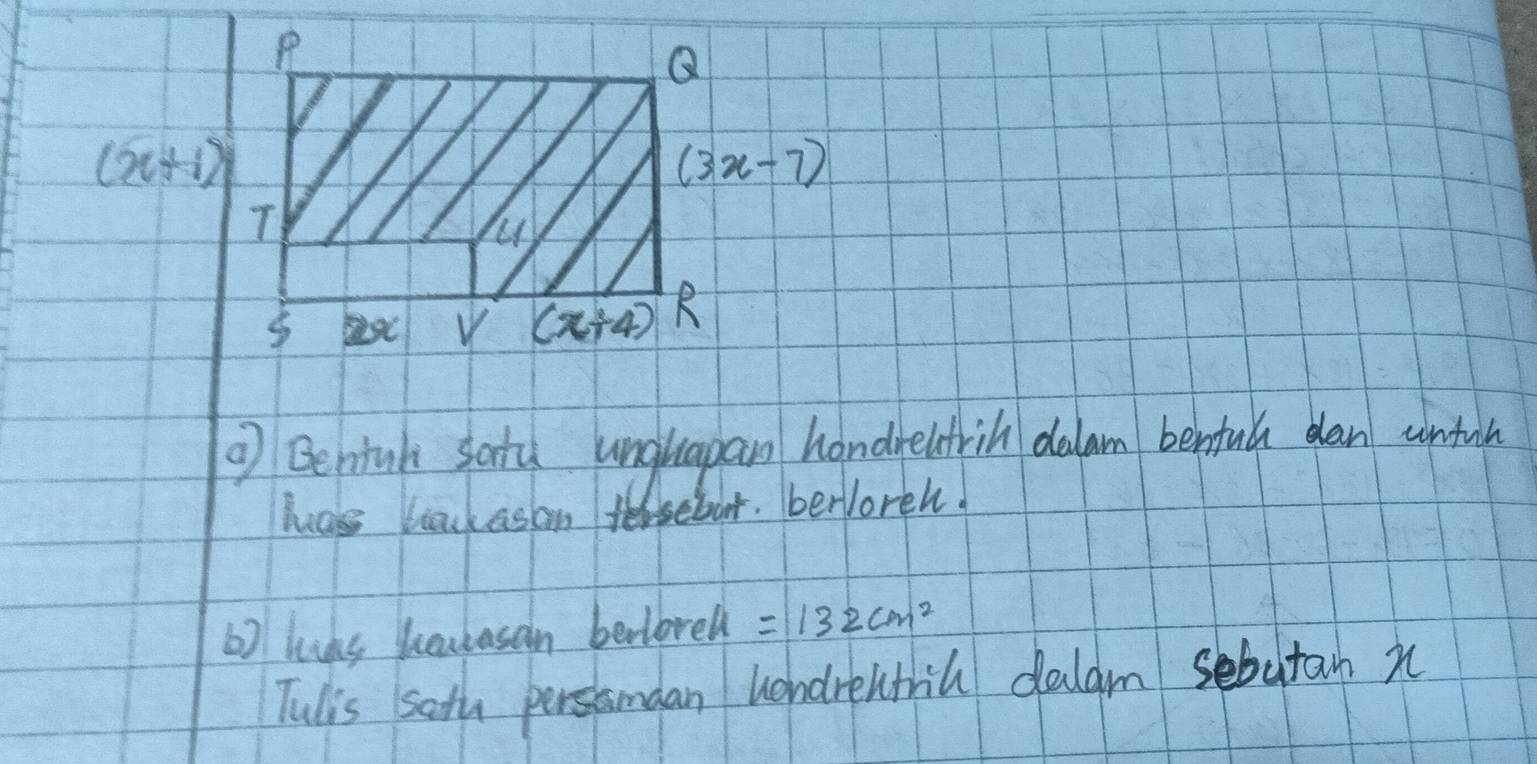 P Q
(x+1) (3x-7)
T U
S 2x V (x+4) R
a) Bentuk satu ungkapan kondrektrik dalam bentuk dan untuk
luas kawasan tersebut. berlorek.
b) luas kawasan berlorek = 132cm²
Tulis satu persamaan kondrektrik dalam sebutan x